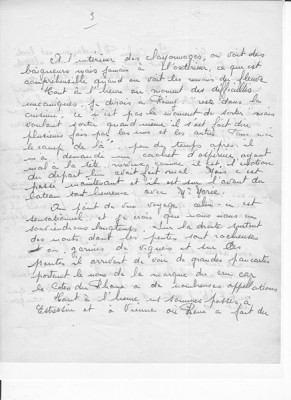 3
A l'intérieur des clayonnages, on voit des
baigneurs mais jamais à l'extérieur, ce qui est
compréhensible quand on voit les remous du fleuve
Tout à l'heure au moment des difficultés
mécaniques, je disais à René reste dans la
ce n'est pas le moment de sortir mais
voulant sortir quand même il s'est fait dire
plusieurs fois par les uns et les autres
le camp de là" - peu de temps après il
m'a demandé un cachet d'aspirine ayant
mal à la tête, nerveux comme il est, l'
du départ lui avait fait mal. Mais c'est
passé maintenant et il est sur l'avant du
bateau tout heureux avec
Au point de vue voyage, celui-ci est
sensationnel et je crois que nous nous en
souviendrons longtemps. Sur la droite
des monts dont les pentes sont rocheuses
et garnies de vignes et sur les
pentes il arrivent de voir de grandes pancartes
portant le nom de la marque du cru car
les Côtes du Rhône a de nombreuses appellations
Tout à l'heure nous sommes passés à
Estressin et à Vienne où René a fait du